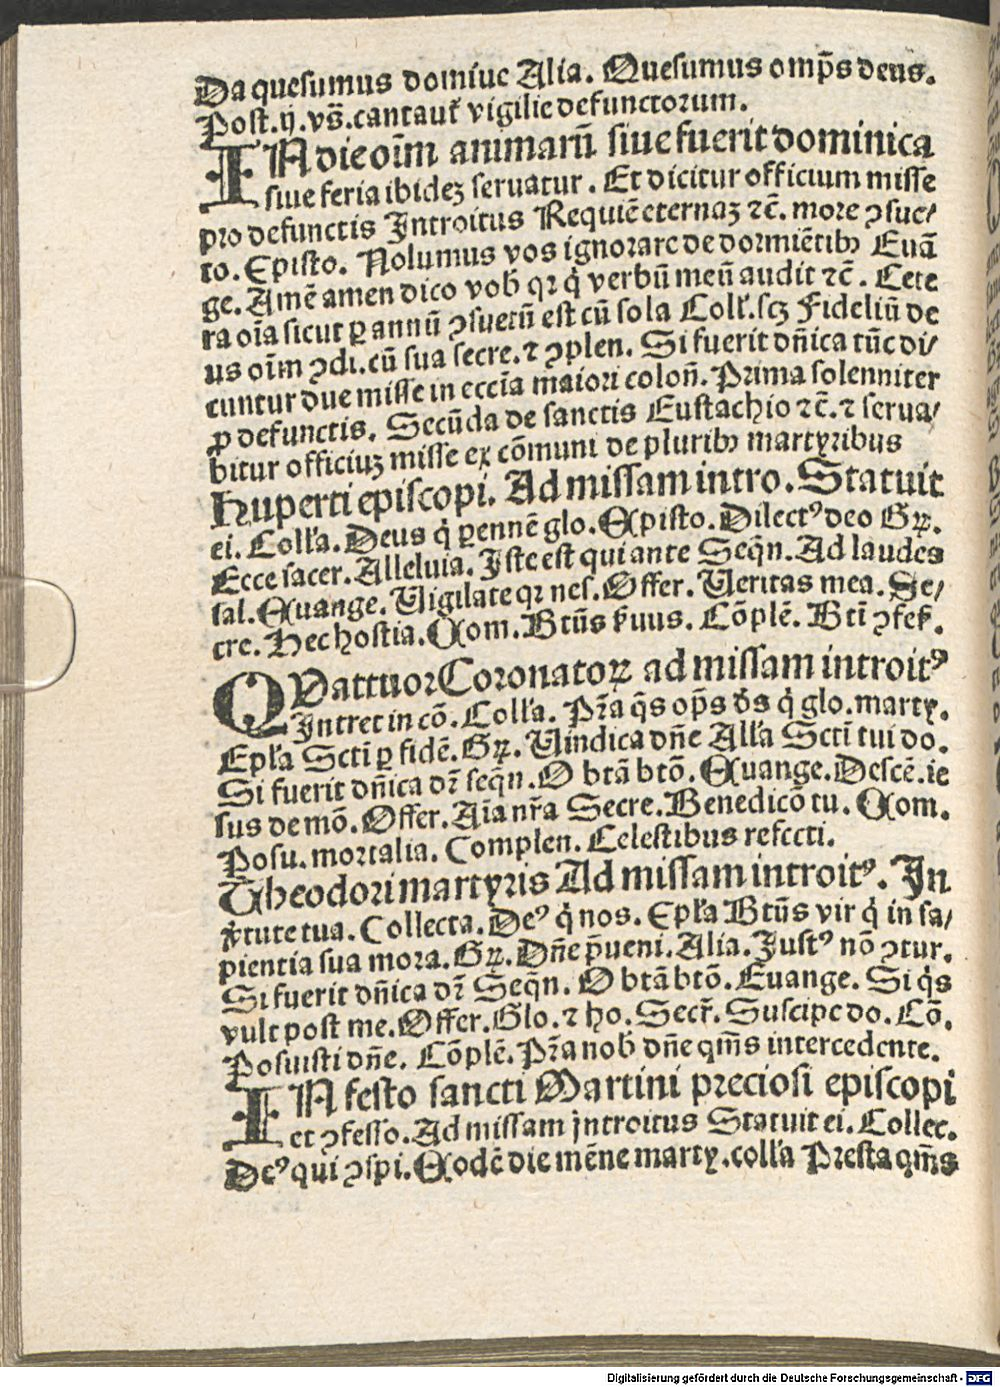 Da quesumus domiue Alia. Quesumus omp̄s deus.
Post .ij. vs̄. cantaut᷑ vigilie defunctorum.
IN die oīm animarū siue fuerit dominica
siue feria ibidez̧ seruatur. Et dicitur officium misse
pro defunctis Introitus Requiē eternaz̧ ⁊c̄. more ꝯsue/
to. Episto. Nolumus vos ignorare de dormiētibꝫ Euā
ge. Amē amen dico vob̄ qꝛ q̇ verbū meū audit ⁊c̄. Cete
ra oīa sicut ꝑ annū ꝯsuetū est cū sola Coll'. scꝫ Fideliū de
us oīm ꝯdi. cū sua secre. ⁊ ꝯplen. Si fuerit dn̄ica tūc di/
cuntur due misse in eccīa maiori colon̄. Prima solenniter
ꝓ defunctis. Secūda de sanctis Eustachio ⁊c̄. ⁊ serua/
bitur officiuꝫ misse ex cōmuni de pluribꝫ martyribus
Huperti episcopi. Ad missam intro. Statuit
ei. Coll'a. Deus q̇ ꝑennē glo. Episto. Dilectꝰ deo Gꝝ.
Ecce sacer. Alleluia. Iste est qui ante Seq̄n. Ad laudes
sal. Euange. Uigilate qꝛ nes. Offer. Ueritas mea. Se/
cre. Hec hostia. Com. Btūs s̄uus. Cōplē. Btī ꝯfes̄.
QUattuor Coronatoꝝ ad missam introitꝰ
Intret in cō. Coll'a. Pr̄a q̄s op̄s ds̄ q̇ glo. marty.
Epl'a Sctī ꝑ fidē. Gꝝ. Uindica dn̄e All'a Sctī tui do.
Si fuerit dn̄ica dr̄ seq̄n. O btā btō. Euange. Descē. ie
sus de mō. Offer. Aīa nr̄a Secre. Benedicō tu. Com.
Posu. mortalia. Complen. Celestibus refecti.
Theodori martyris Ad missam introitꝰ. In
v̇tute tua. Collecta. Deꝰ q̇ nos. Epl'a Btūs vir q̇ in sa/
pientia sua mora. Gꝝ. Dn̄e p̄ueni. Alia. Justꝰ nō ꝯtur.
Si fuerit dn̄ica dr̄ Seq̄n. O btā btō. Euange. Si q̇s
vult post me. Offer. Glo. ⁊ ho. Secr̄. Suscipe do. Cō.
Posuisti dn̄e. Cōplē. Pr̄a nob̄ dn̄e qm̄s intercedente.
IN festo sancti Martini preciosi episcopi
et ꝯfesso. Ad missam introitus Statuit ei. Collec.
Deꝰ qui ꝯspi. Eodē die mēne marty. coll'a Presta qm̄s
Digitalisierung gefördert durch die Deutsche Forschungsgemeinschaft - DFG